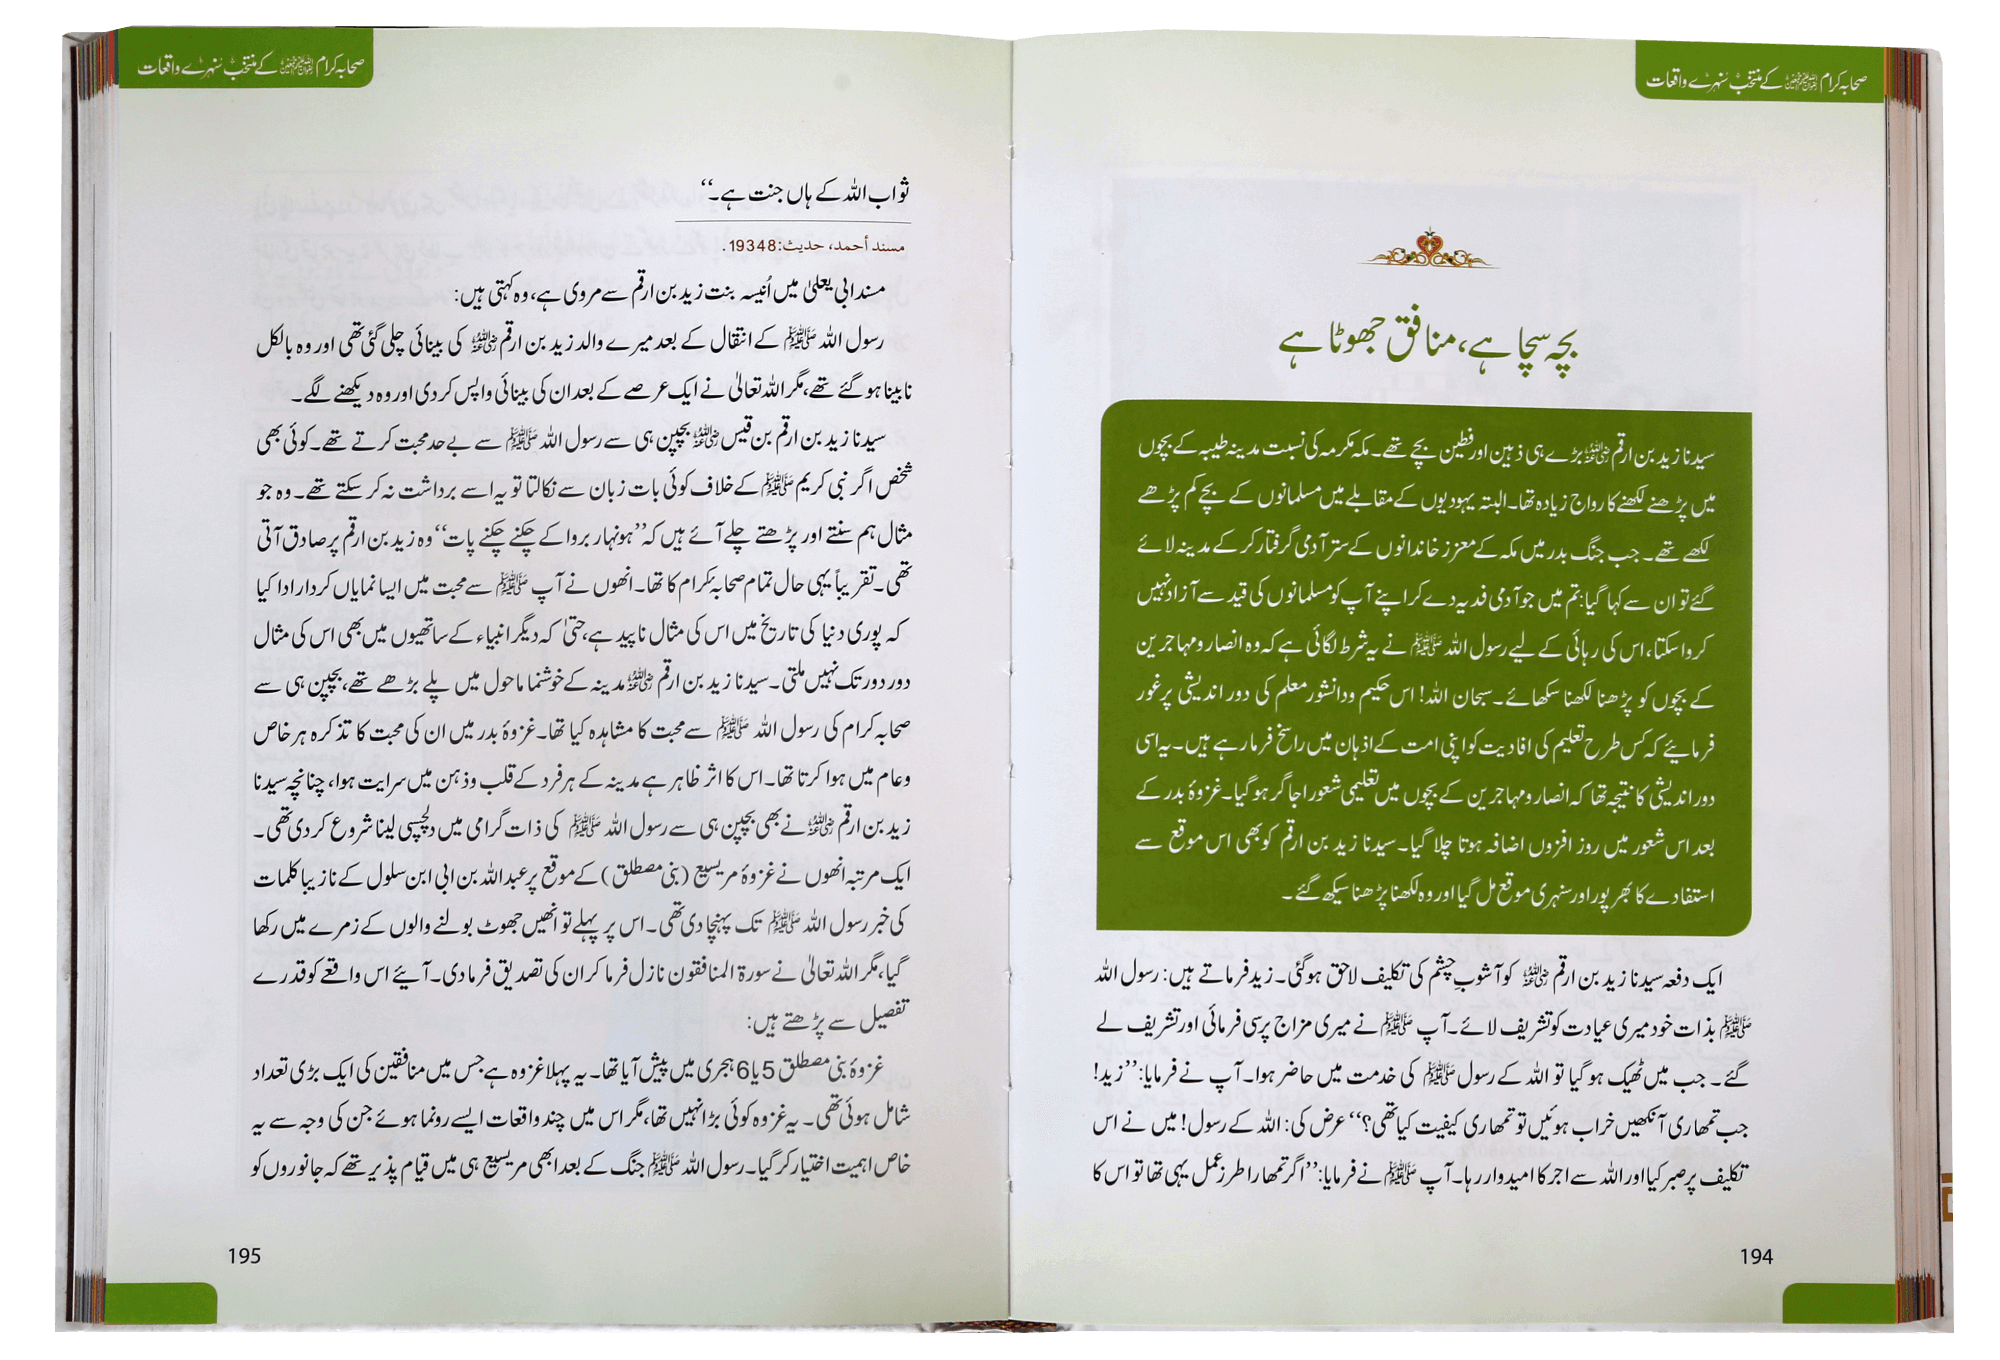 صحابہ کرام رضوان اللہ علیہم اجمعین کے منتخب سنہرے واقعات
بچہ سچا ہے، منافق جھوٹا ہے
سیدنا زید بن ارقم رضی اللہ عنہ بڑے ہی ذہین اور فطین بچے تھے۔ مکہ مکرمہ کی نسبت مدینہ طیبہ کے بچوں
میں پڑھنے لکھنے کا رواج زیادہ تھا۔ البتہ یہودیوں کے مقابلے میں مسلمانوں کے بچے کم پڑھے
لکھے تھے۔ جب جنگ بدر میں مکہ کے معزز خاندانوں کے ستر آدمی گرفتار کر کے مدینہ لائے
گئے تو ان سے کہا گیا: تم میں جو آدمی فدیہ دے کر اپنے آپ کو مسلمانوں کی قید سے آزاد نہیں
کروا سکتا، اس کی رہائی کے لیے رسول اللہ ﷺ نے یہ شرط لگائی ہے کہ وہ انصار و مہاجرین
کے بچوں کو پڑھنا لکھنا سکھائے۔ سبحان اللہ! اس حکیم ودانشور معلم کی دور اندیشی پر غور
فرمائیے کہ کس طرح تعلیم کی افادیت کو اپنی امت کے اذہان میں راسخ فرما رہے ہیں۔ یہ اسی
دور اندیشی کا نتیجہ تھا کہ انصار و مہاجرین کے بچوں میں تعلیمی شعور اجاگر ہو گیا۔ غزوۂ بدر کے
بعد اس شعور میں روز افزوں اضافہ ہوتا چلا گیا۔ سیدنا زید بن ارقم کو بھی اس موقع سے
استفادے کا بھرپور اور سنہری موقع مل گیا اور وہ لکھنا پڑھنا سیکھ گئے۔
ایک دفعہ سیدنا زید بن ارقم رضی اللہ عنہ کو آشوبِ چشم کی تکلیف لاحق ہو گئی۔ زید فرماتے ہیں: رسول اللہ
ﷺ بذات خود میری عیادت کو تشریف لائے۔ آپ ﷺ نے میری مزاج پرسی فرمائی اور تشریف لے
گئے۔ جب میں ٹھیک ہو گیا تو اللہ کے رسول ﷺ کی خدمت میں حاضر ہوا۔ آپ نے فرمایا: ’’زید!
جب تمھاری آنکھیں خراب ہوئیں تو تمھاری کیفیت کیا تھی؟‘‘ عرض کی: اللہ کے رسول! میں نے اس
تکلیف پر صبر کیا اور اللہ سے اجر کا امیدوار رہا۔ آپ ﷺ نے فرمایا: ’’اگر تمھارا طرز عمل یہی تھا تو اس کا
194
صحابہ کرام رضوان اللہ علیہم اجمعین کے منتخب سنہرے واقعات
ثواب اللہ کے ہاں جنت ہے۔‘‘
مسند أحمد، حدیث: 19348.
مسند ابی یعلیٰ میں اُنیسہ بنت زید بن ارقم سے مروی ہے، وہ کہتی ہیں:
رسول اللہ ﷺ کے انتقال کے بعد میرے والد زید بن ارقم رضی اللہ عنہ کی بینائی چلی گئی تھی اور وہ بالکل
نابینا ہو گئے تھے، مگر اللہ تعالیٰ نے ایک عرصے کے بعد ان کی بینائی واپس کر دی اور وہ دیکھنے لگے۔
سیدنا زید بن ارقم بن قیس رضی اللہ عنہ بچپن ہی سے رسول اللہ ﷺ سے بے حد محبت کرتے تھے۔ کوئی بھی
شخص اگر نبی کریم ﷺ کے خلاف کوئی بات زبان سے نکالتا تو یہ اسے برداشت نہ کر سکتے تھے۔ وہ جو
مثال ہم سنتے اور پڑھتے چلے آئے ہیں کہ ’’ہونہار بروا کے چکنے چکنے پات‘‘ وہ زید بن ارقم پر صادق آتی
تھی۔ تقریباً یہی حال تمام صحابہ کرام کا تھا۔ انھوں نے آپ ﷺ سے محبت میں ایسا نمایاں کردار ادا کیا
کہ پوری دنیا کی تاریخ میں اس کی مثال ناپید ہے، حتیٰ کہ دیگر انبیاء کے ساتھیوں میں بھی اس کی مثال
دور دور تک نہیں ملتی۔ سیدنا زید بن ارقم رضی اللہ عنہ مدینہ کے خوشنما ماحول میں پلے بڑھے تھے، بچپن ہی سے
صحابہ کرام کی رسول اللہ ﷺ سے محبت کا مشاہدہ کیا تھا۔ غزوۂ بدر میں ان کی محبت کا تذکرہ ہر خاص
و عام میں ہوا کرتا تھا۔ اس کا اثر ظاہر ہے مدینہ کے ہر فرد کے قلب و ذہن میں سرایت ہوا، چنانچہ سیدنا
زید بن ارقم رضی اللہ عنہ نے بھی بچپن ہی سے رسول اللہ ﷺ کی ذات گرامی میں دلچسپی لینا شروع کر دی تھی۔
ایک مرتبہ انھوں نے غزوۂ مریسیع (بنی مصطلق) کے موقع پر عبداللہ بن ابی ابن سلول کے نازیبا کلمات
کی خبر رسول اللہ ﷺ تک پہنچا دی تھی۔ اس پر پہلے تو انھیں جھوٹ بولنے والوں کے زمرے میں رکھا
گیا، مگر اللہ تعالیٰ نے سورۃ المنافقون نازل فرما کر ان کی تصدیق فرما دی۔ آیئے اس واقعے کو قدرے
تفصیل سے پڑھتے ہیں:
غزوۂ بنی مصطلق 5 یا 6 ہجری میں پیش آیا تھا۔ یہ پہلا غزوہ ہے جس میں منافقین کی ایک بڑی تعداد
شامل ہوئی تھی۔ یہ غزوہ کوئی بڑا نہیں تھا، مگر اس میں چند واقعات ایسے رونما ہوئے جن کی وجہ سے یہ
خاص اہمیت اختیار کر گیا۔ رسول اللہ ﷺ جنگ کے بعد ابھی مریسیع ہی میں قیام پذیر تھے کہ جانوروں کو
195